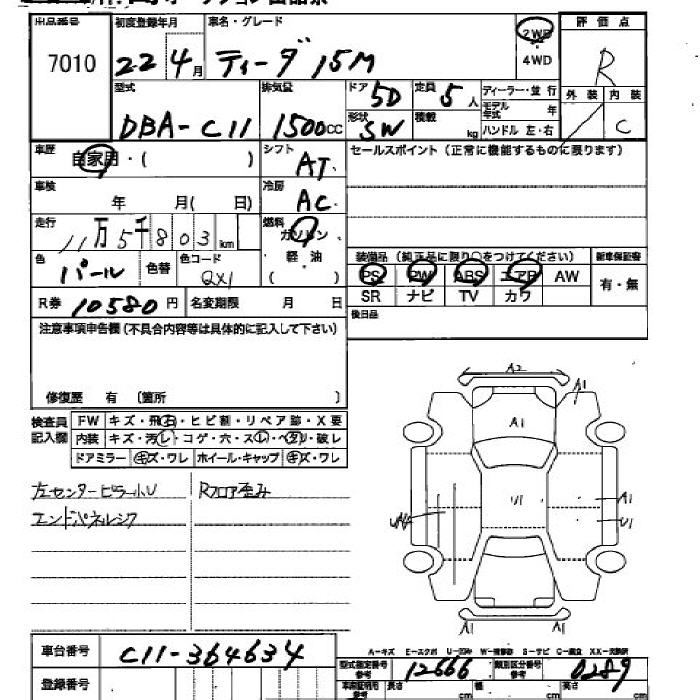 出品番号 初度登録年月 車名・グレード 2WD 評価点
7010 22 4月 ティーダ 15M 4WD R
型式 排気量 ドア 5D 定員 5人 ディーラー・並行 外装 内装
DBA-C11 1500cc 形状 SW 積載 kg モデル年式 年 C
ハンドル 左・右
車歴 自家用・( ) シフト AT セールスポイント(正常に機能するものに限ります)
車検 年 月( 日) 冷房 AC
走行 11万5千803km 燃料 ガソリン
色 パール 色替 色コード QX1 軽・油 ( )
装備品(純正品に限り○をつけてください) 新車保証書
PS PW ABS エアB AW 有・無
SR ナビ TV カワ
R券 10580円 名変期限 月 日 後日品
注意事項申告欄(不具合内容等は具体的に記入して下さい)
修復歴 有 〔箇所 〕
検査員記入欄 FW キズ・飛石・ヒビ割・リペア跡・X要
内装 キズ・汚レ・コゲ・穴・スレ・ヘタリ・破レ
ドアミラー キズ・ワレ ホイール・キャップ キズ・ワレ
左センターピラー小U Rフロア歪み
エンドパネルシワ
A2
A1
A1
U1
A1
U1
A1 A1
A-キズ E-エクボ
車台番号 C11-364634
型式指定番号 参考 12666 類別区分番号 参考 0289
登録番号
長さ cm 幅 cm 高さ cm